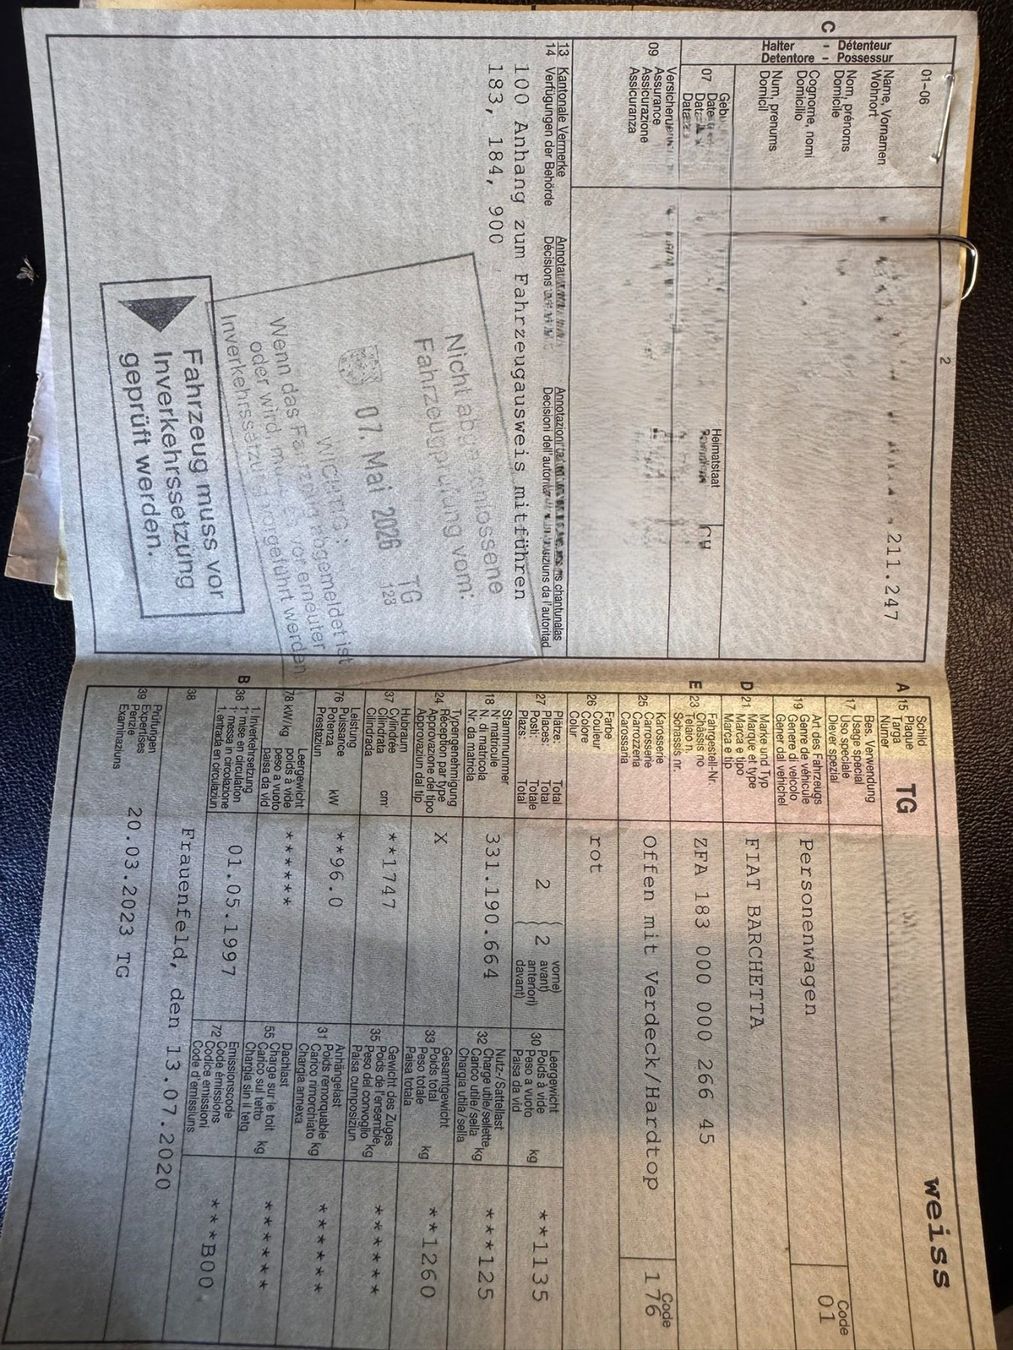 01-06
2
211.247
C
Halter - Détenteur
Detentore - Possessur
Name, Vornamen
Wohnort
Nom, prénoms
Domicile
Cognome, nomi
Domicilio
Num, prenums
Domicil
Heimatstaat
CH
07
09
Assurance
Assicurazione
Assicuranza
13 Kantonale Vermerke
14 Verfügungen der Behörde
Décisions
Decisioni
100 Anhang zum Fahrzeugausweis mitführen
183, 184, 900
Nicht abgeschlossene
Fahrzeugprüfung vom:
07. Mai 2026 TG
23
WICHTIG:
Wenn das Fahrzeug abgemeldet ist
oder wird, muss
Fahrzeug muss vor
Inverkehrssetzung
geprüft werden.
weiss
A 15 Schild
Plaque
Targa
Numer
TG
17 Bes. Verwendung
Usage spécial
Uso speciale
Diever spezial
19 Art des Fahrzeugs
Genre de véhicule
Genere di veicolo
Gener dal vehichel
Personenwagen
Code
01
D 21 Marke und Typ
Marque et type
Marca e tipo
Marca e tip
FIAT BARCHETTA
E 23 Fahrgestell-Nr.
Châssis no
Telaio n.
Schassis nr.
ZFA 183 000 000 266 45
25 Karosserie
Carrosserie
Carrozzeria
Carossaria
Offen mit Verdeck/Hardtop
Code
176
26 Farbe
Couleur
Colore
Colur
rot
27 Plätze: Total
Places: Total
Posti: Totale
Plazs: Total
2
2
vorne)
avant)
anteriori)
davant)
30 Leergewicht
Poids à vide
Peso a vuoto
Paisa da vid
kg
**1135
18 Stammnummer
N° matricule
N. di matricola
Nr. da matricla
331.190.664
32 Nutz-/Sattellast
Charge utile/sellette
Carico utile/sella
Chargia utila/sella
kg
***125
24 Typengenehmigung
Réception par type
Approvazione del tipo
Approvaziun dal tip
X
33 Gesamtgewicht
Poids total
Peso totale
Paisa totala
kg
**1260
37 Hubraum
Cylindrée
Cilindrata
Cilindrada
cm³
**1747
35 Gewicht des Zuges
Poids de l'ensemble
Peso del convoglio
Paisa cumposiziun
kg
******
76 Leistung
Puissance
Potenza
Prestaziun
kW
**96.0
31 Anhängelast
Poids remorquable
Carico rimorchiato
Chargia annexa
kg
******
78 kW/kg
Leergewicht
poids à vide
peso a vuoto
paisa da vid
******
55 Dachlast
Charge sur le toit
Carico sul tetto
Chargia sin il tetg
kg
******
B 36 1. Inverkehrsetzung
1re mise en circulation
1a messa in circolazione
1. entrada en circulaziun
01.05.1997
72 Emissionscode
Code émissions
Codice emissioni
Code d'emissiuns
***B00
38
Frauenfeld, den 13.07.2020
39 Prüfungen
Expertises
Perizie
Examinaziuns
20.03.2023 TG